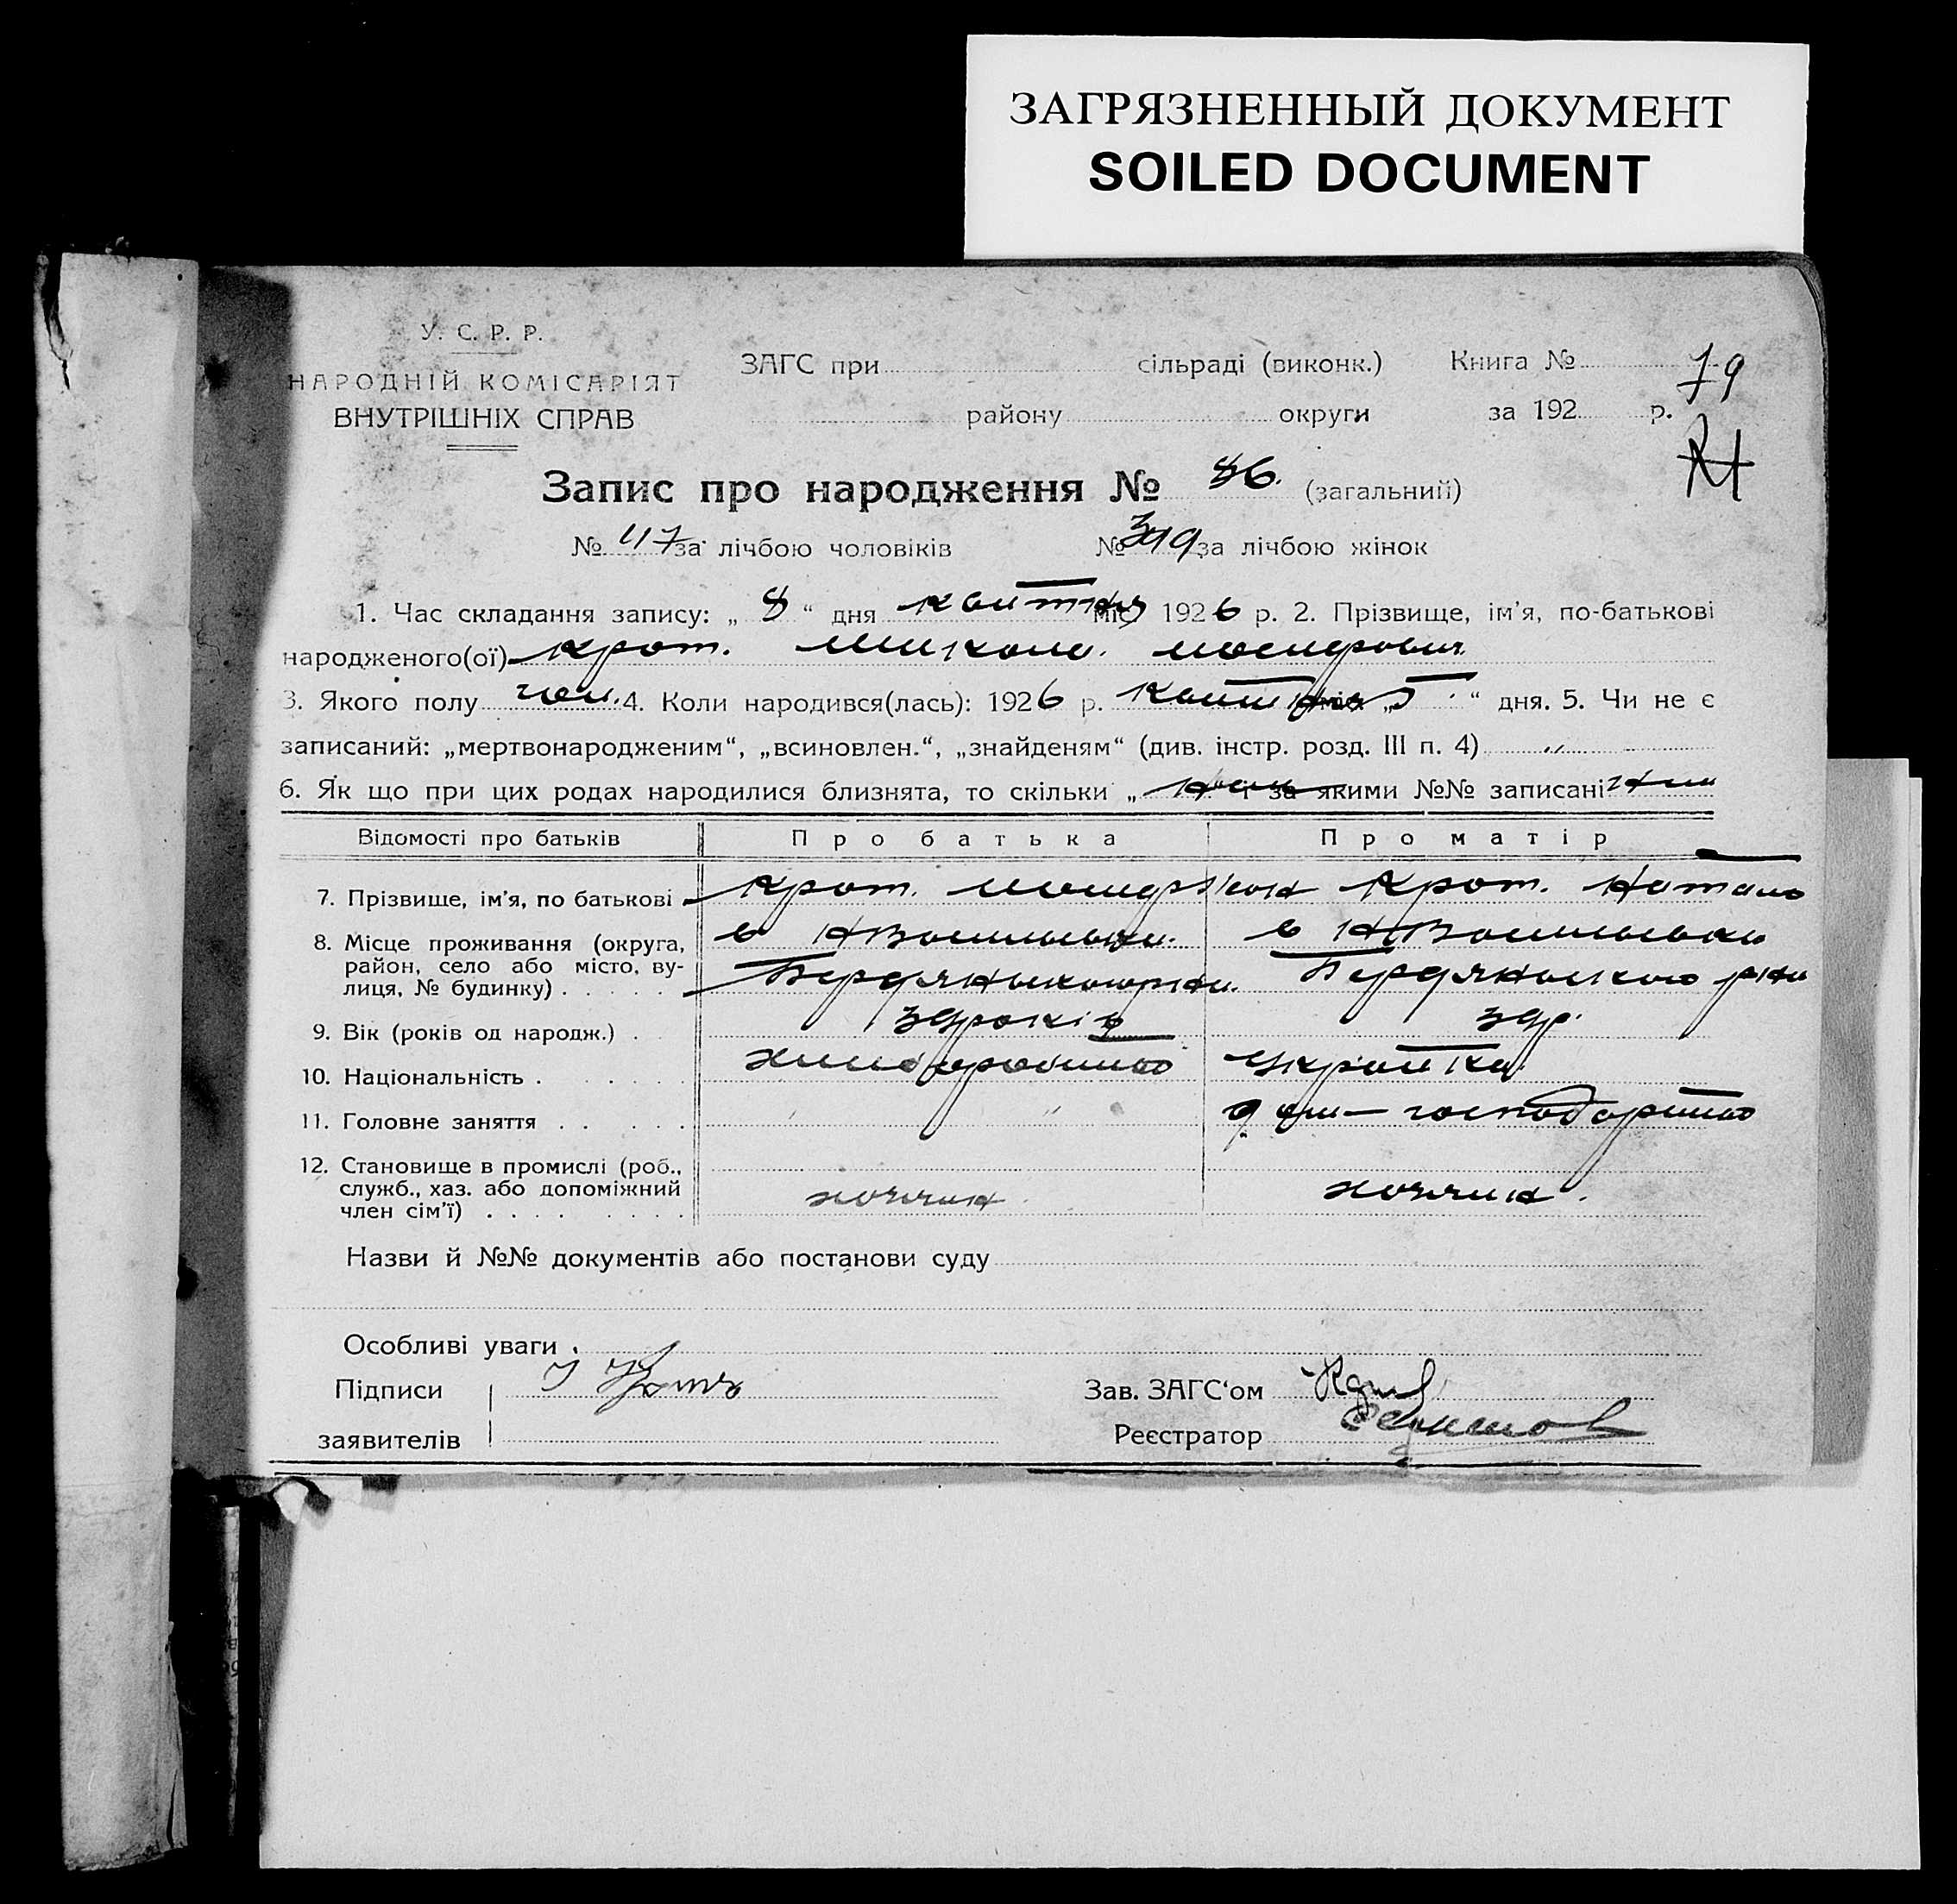 ЗАГРЯЗНЕННЫЙ ДОКУМЕНТ
SOILED DOCUMENT
У. С. Р. Р.
НАРОДНІЙ КОМІСАРІЯТ
ВНУТРІШНІХ СПРАВ
ЗАГС при сільраді (виконк.) Книга №
району округи за 192 р.
79
Запис про народження № 86. (загальний)
№ 47 за лічбою чоловіків № 39 за лічбою жінок
1. Час складання запису: „ 8 “ дня квітня міс. 1926 р. 2. Прізвище, ім’я, по-батькові
народженого(ої) Крот. Микола. Йосипович
3. Якого полу чол. 4. Коли народився(лась): 1926 р. квітня міс. „ 5 “ дня. 5. Чи не є
записаний: „мертвонародженим“, „всиновлен.“, „знайденям“ (див. інстр. розд. III п. 4) „
6. Як що при цих родах народилися близнята, то скільки „ і за якими №№ записані
Відомості про батьків Про батька Про матір
7. Прізвище, ім’я, по батькові Крот. Крот. Натала
8. Місце проживання (округа, в НВасильевки. в НВасильевки
район, село або місто, ву- Бердянського р-ну. Бердянського р-ну
лиця, № будинку)
9. Вік (років од народж.) років
10. Національність хліборобство українка
11. Головне заняття " дом-господарство
12. Становище в промислі (роб.,
служб., хаз. або допоміжний хозяин хозяин.
член сім’ї)
Назви й №№ документів або постанови суду
Особливі уваги
Підписи І Крот Зав. ЗАГС‘ом
заявителів Реєстратор